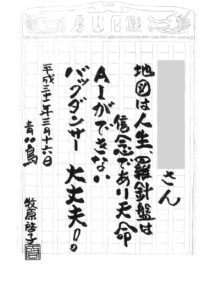 さん
地図は人生 羅針盤は
信念であり天命
AIができない
バックダンサー 大丈夫!!
平成三十一年三月十六日
青い鳥
牧原